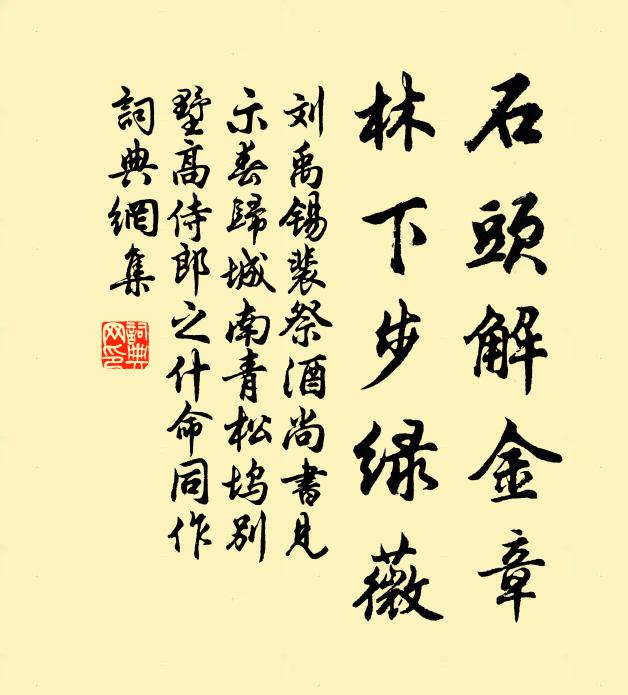 石頭解金章
林下步绿薇
刘禹锡裴祭酒尚書見
示春歸城南青松坞别
墅高侍郎之什命同作
詞典網集
詞典网印